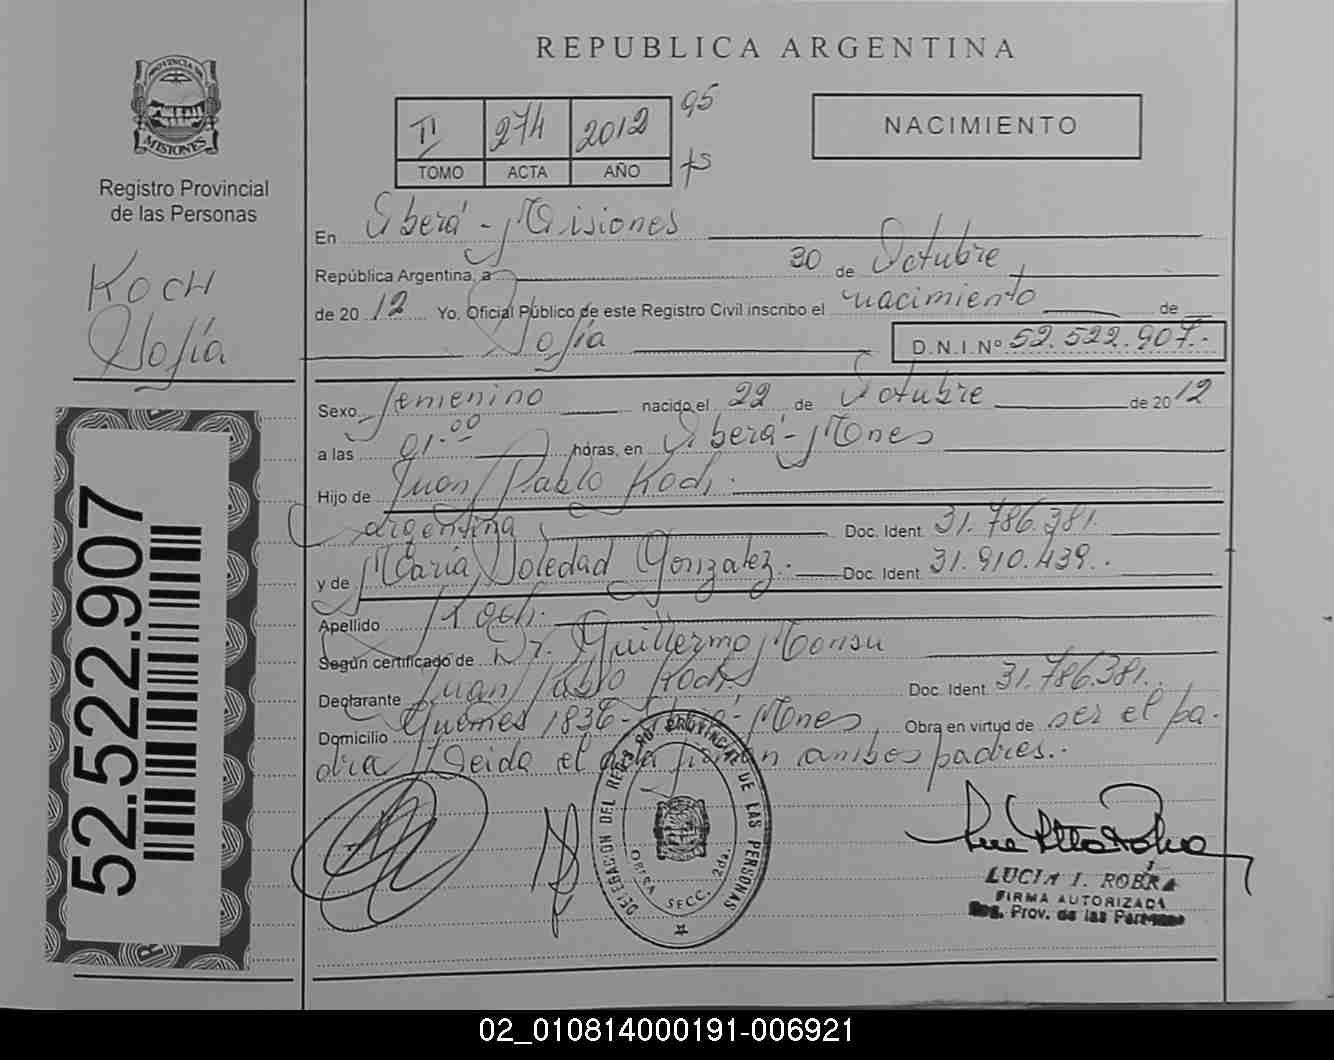 REPUBLICA ARGENTINA
PROVINCIA DE
MISIONES
Registro Provincial
de las Personas
Koch
Sofía
52.522.907
II 274 2012 95
TOMO ACTA AÑO fs
NACIMIENTO
En Oberá - Misiones
República Argentina, a 30 de Octubre
de 20 12 Yo, Oficial Público de este Registro Civil inscribo el nacimiento de
Sofía D.N.I.Nº 52.522.907.-
Sexo femenino nacido el 22 de Octubre de 20 12
a las 01.00 horas, en Oberá - Mones
Hijo de Juan Pablo Koch.
argentina Doc. Ident. 31.786.381.
y de María Soledad Gonzalez.- Doc. Ident. 31.910.439.-
Apellido Koch.
Según certificado de Dr. Guillermo Monsu
Declarante Juan Pablo Koch Doc. Ident. 31.786.381.
Domicilio Guemes 1836 - Oberá - Mones Obra en virtud de ser el pa-
dre Leida el acta firman ambos padres.-
DELEGACION DEL REGISTRO PROVINCIAL DE LAS PERSONAS
OBERA SECC. 2da.
LUCIA I. ROBRA
FIRMA AUTORIZADA
Reg. Prov. de las Personas
02_010814000191-006921